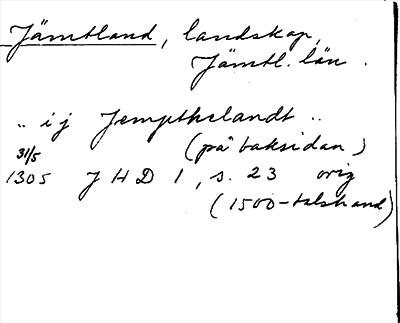 Jämtland, landskap,
Jämtl. län.
.. i j Jempthelandt ..
(på baksidan)
31/5
1305 JHD 1, s. 23 orig
(1500-talshand)